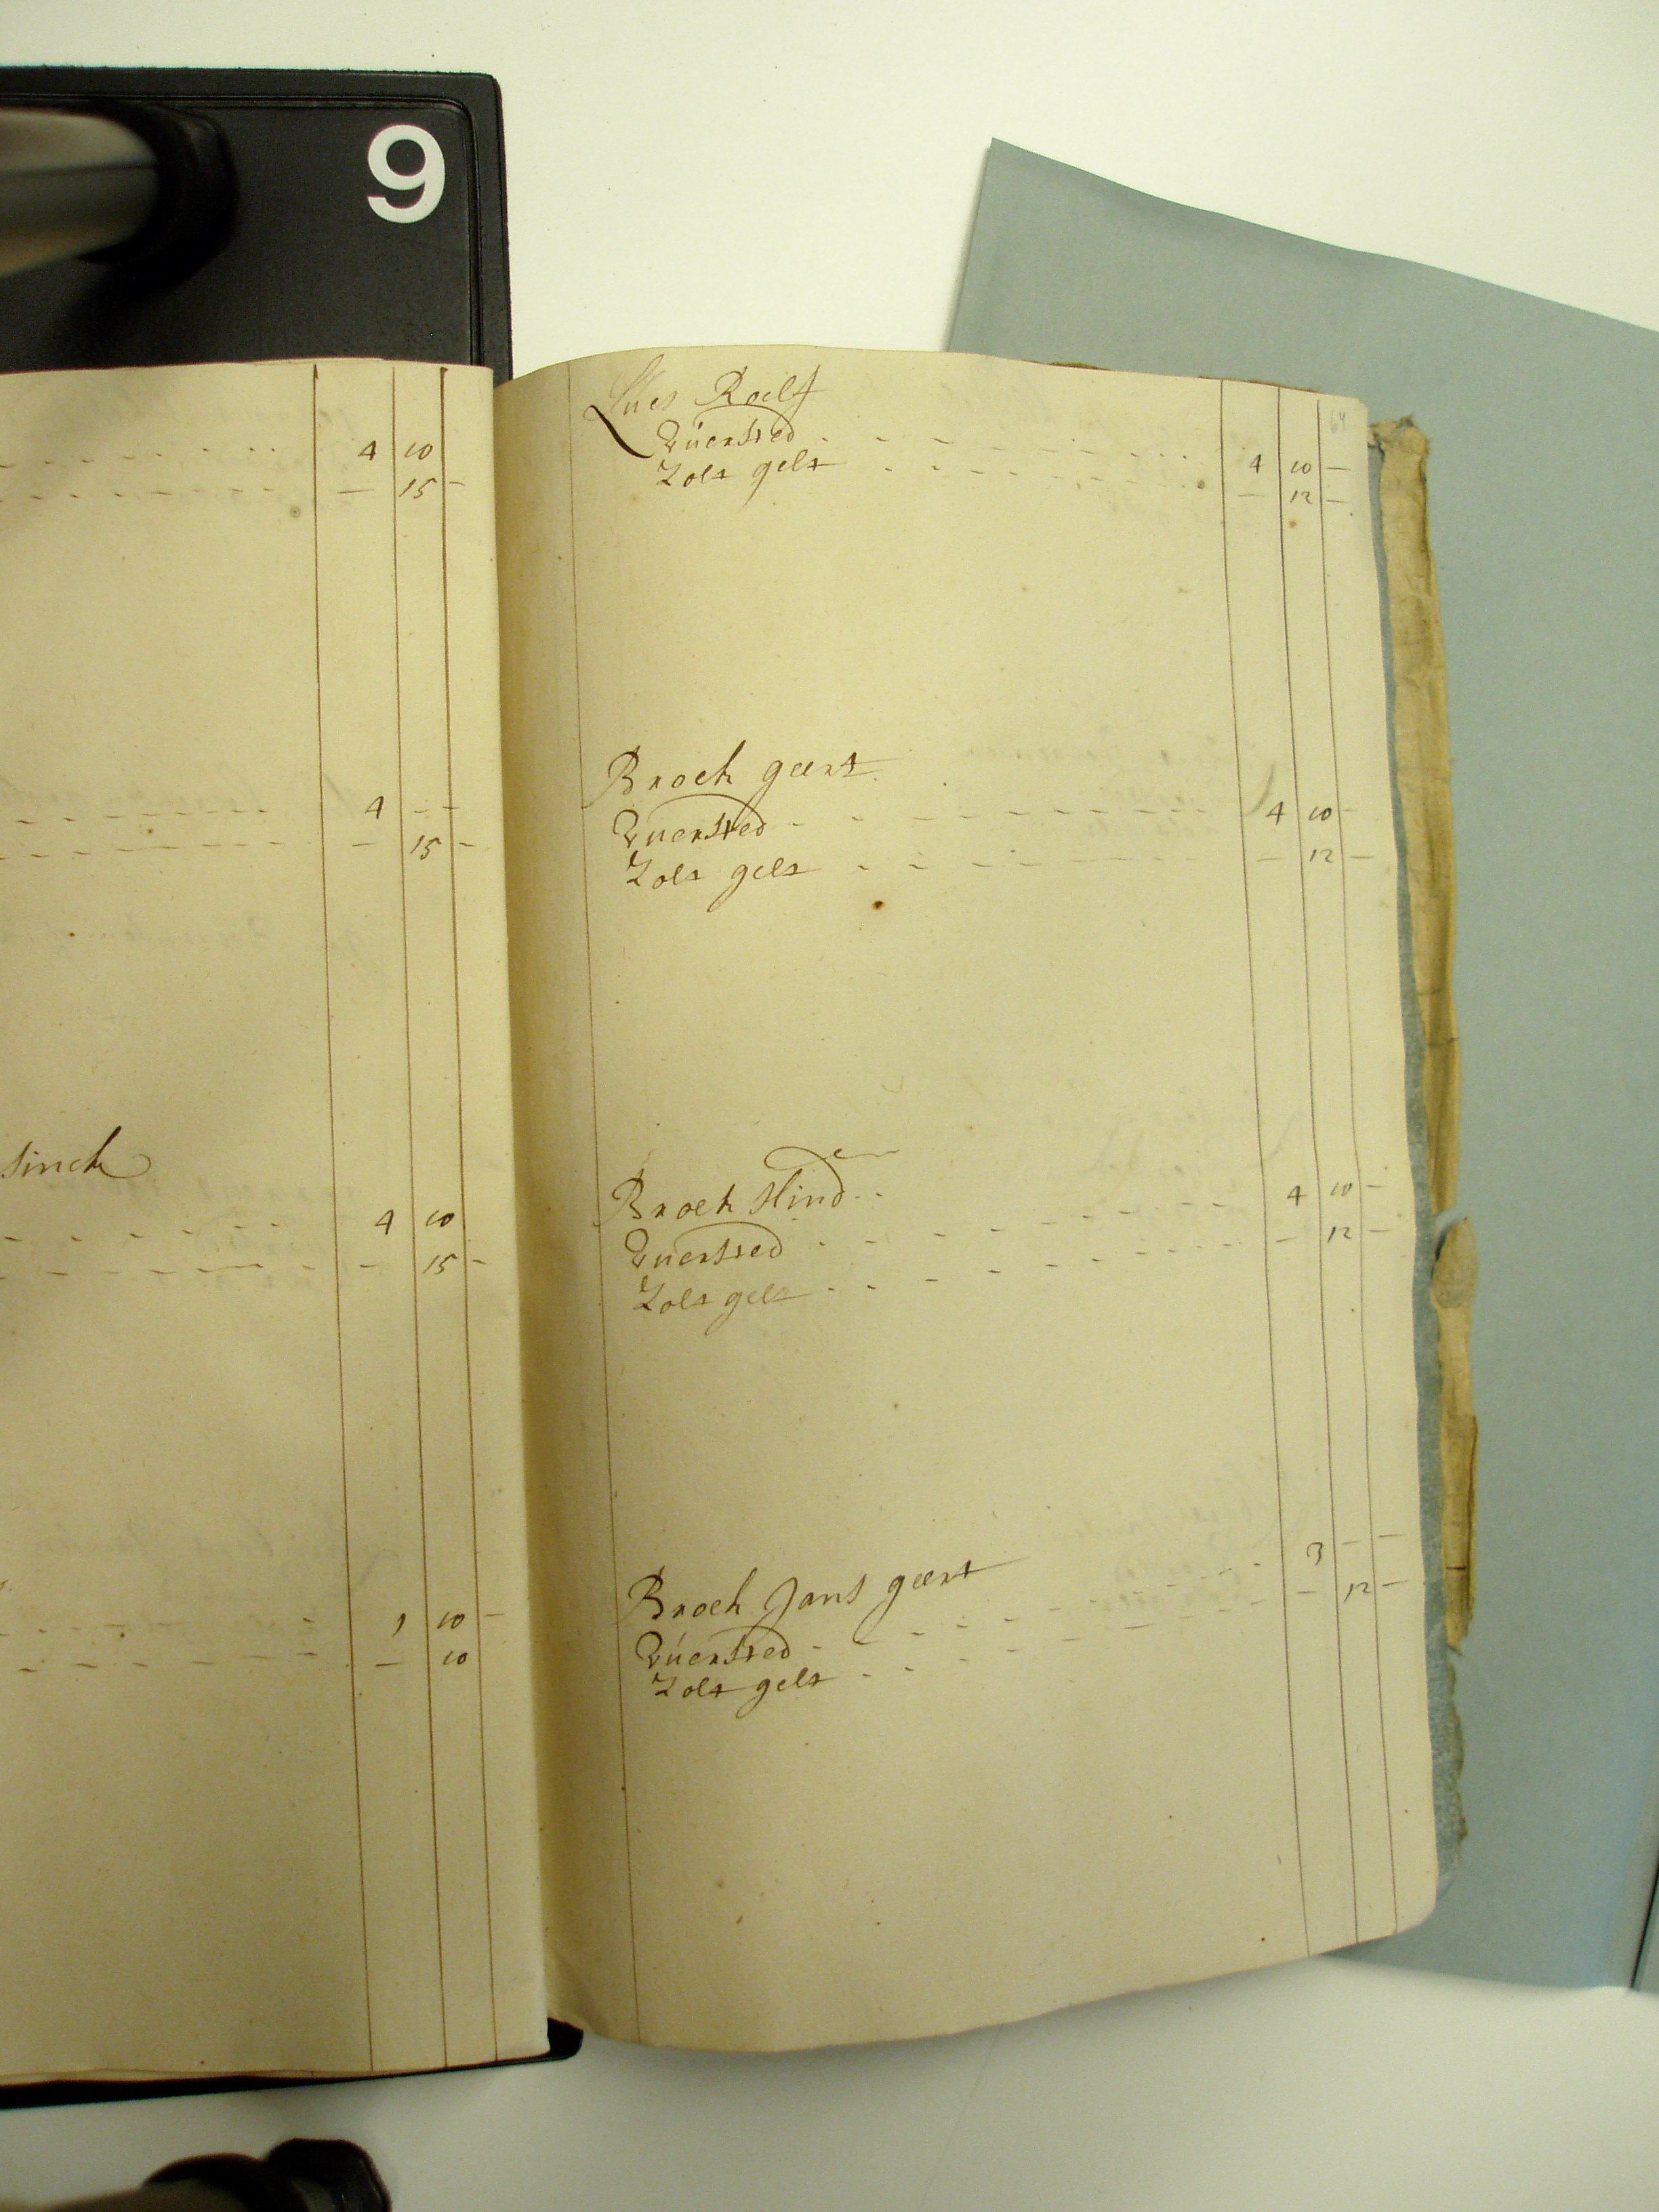 9
4 10
— 15 —
4 — —
— 15 —
sinck
4 10
— 15 —
1 10 —
— 10
64
Lues Roelf
Vuersted 4 10 —
Zolt gelt — 12 —
Broek geert
Vuersted 4 10 —
Zolt gelt — 12 —
Broek Hind
Vuersted 4 10 —
Zolt gelt — 12 —
Broek Jans geert
Vuersted 3 — —
Zolt gelt — 12 —